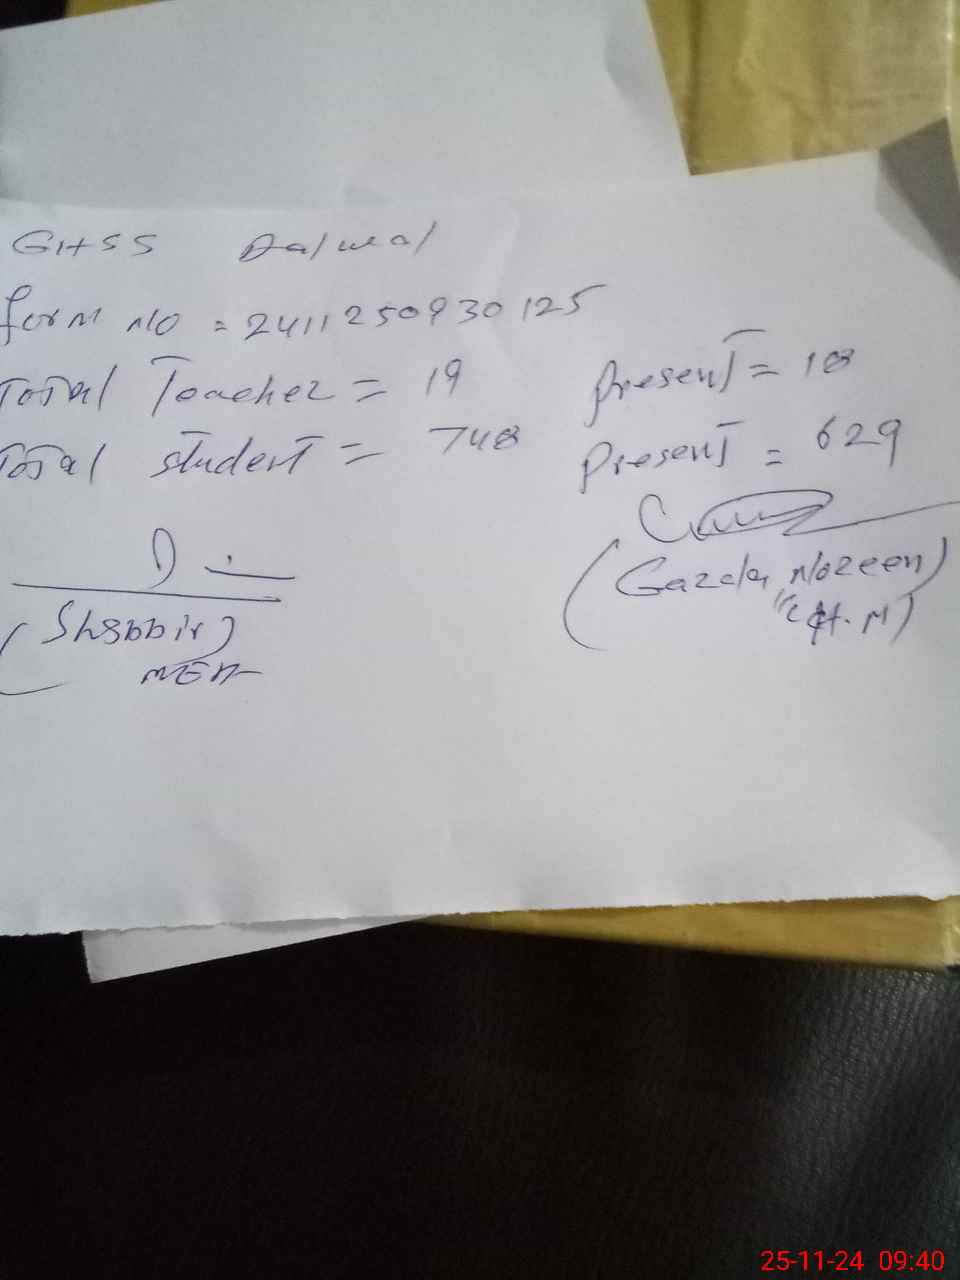 GHSS Dalwal
form no = 2411250930125
Total Teacher = 19 present = 18
Total student = 748 present = 629
(Shabbir) (Gazala Nozeen)
MEA H.M)
25-11-24 09:40